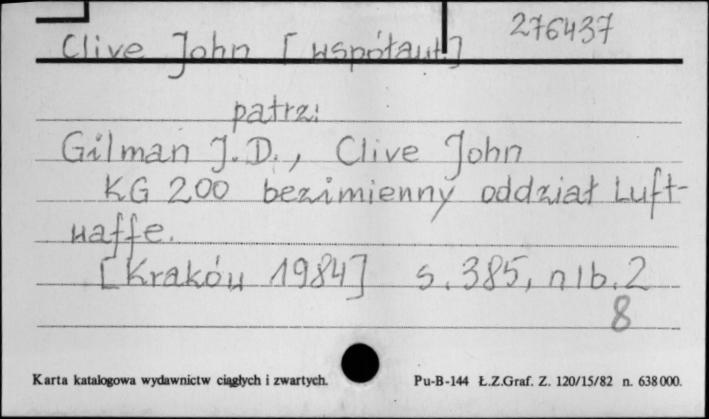 276437
Clive John [współaut.]
patrz:
Gilman J.D., Clive John
KG 200 bezimienny oddział Luft-
waffe.
[Kraków 1984] s. 385, nlb. 2
8
Karta katalogowa wydawnictw ciągłych i zwartych. Pu-B-144 Ł.Z.Graf. Z. 120/15/82 n. 638000.